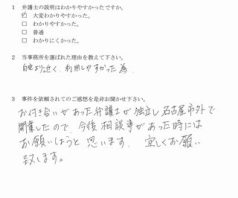 1 弁護士の説明はわかりやすかったですか。
☑ 大変わかりやすかった。
□ わかりやすかった。
□ 普通
□ わかりにくかった。
2 当事務所を選ばれた理由を教えて下さい。
自宅より近く、利用しやすかった為
3 事件を依頼されてのご感想を是非お聞かせ下さい。
お付き合いがあった弁護士が独立し名古屋市外で
開業したので、今後相談事があった時には
お願いしようと思います。宜しくお願い
致します。